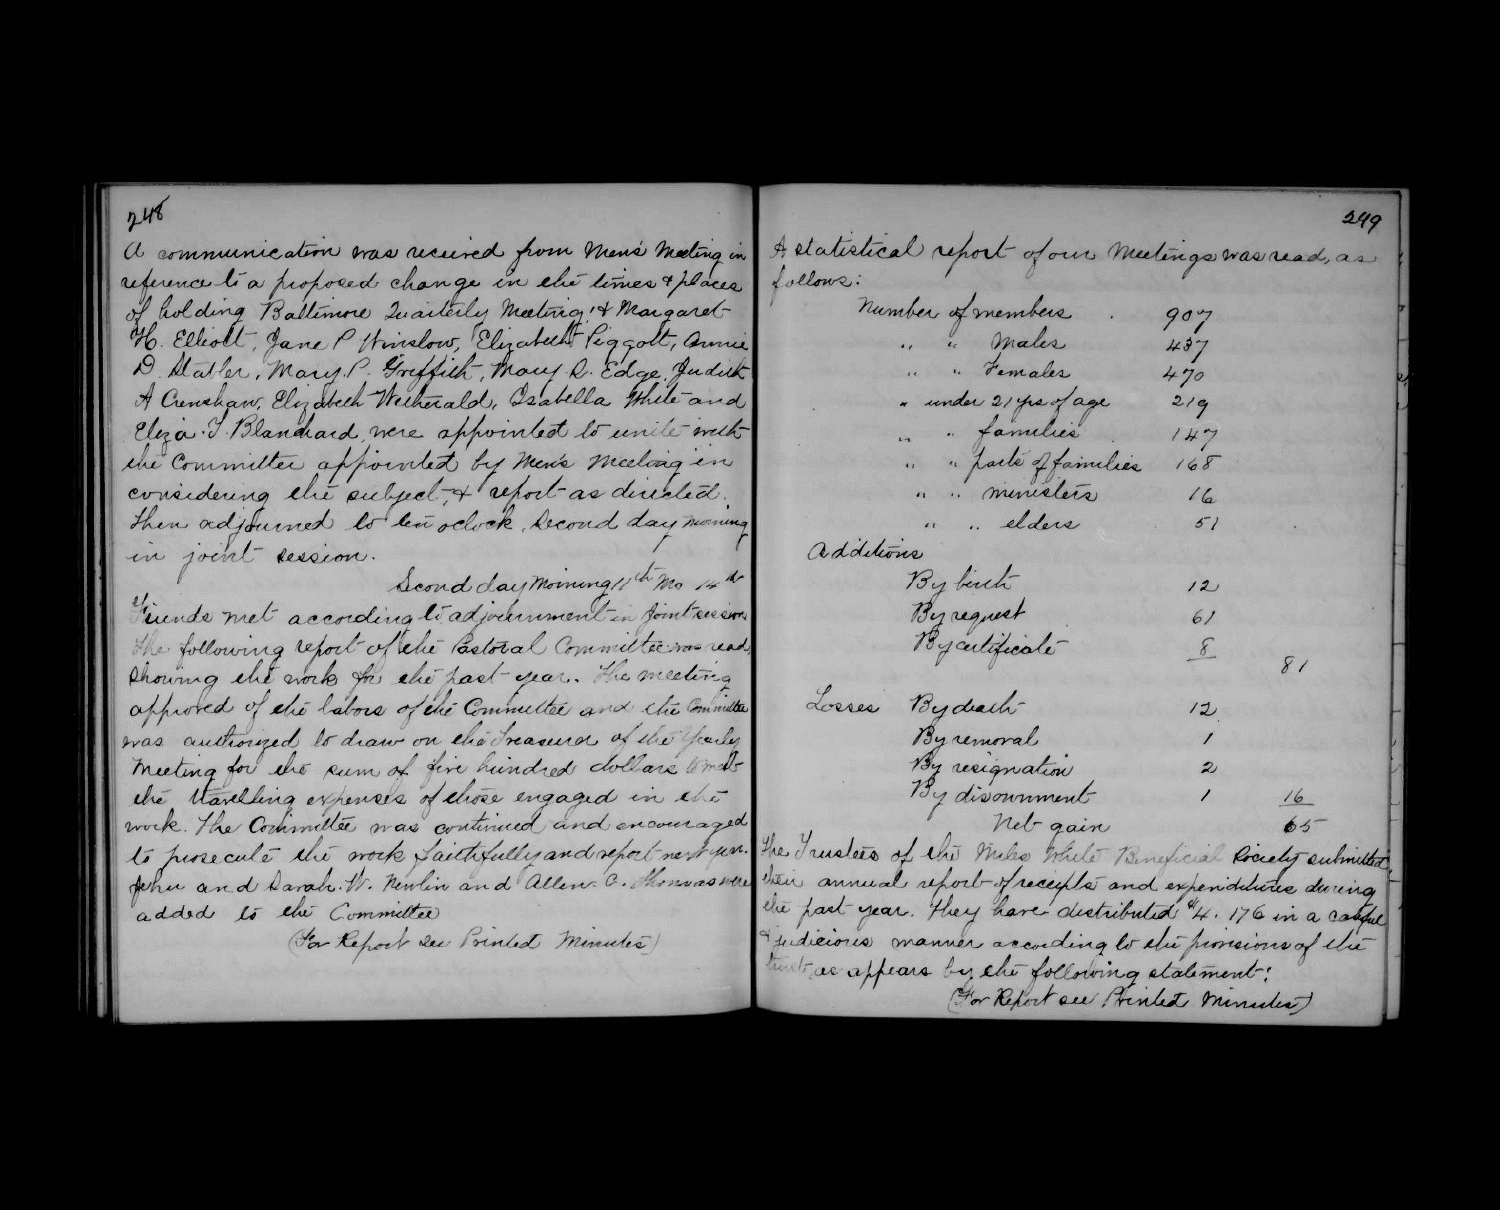 248
A communication was received from Men's Meeting in
reference to a proposed change in the times & places
of holding Baltimore Quarterly Meeting, & Margaret
H. Elliott, Jane P Winslow, Elizabeth Piggott, Annie
D. Stabler, Mary P. Griffith, Mary S. Edge, Judith
A Crenshaw, Elizabeth Wetherald, Isabella White and
Eliza T. Blanchard were appointed to unite with
the Committee appointed by Men's Meeting in
considering the subject, & report as directed.
Then adjourned to ten oclock, Second day morning
in joint session.
Second day Morning 11th Mo 14th
Friends met according to adjournment in Joint session
The following report of the Pastoral Committee was read,
showing the work for the past year. The meeting
approved of the labors of the Committee and the Committee
was authorized to draw on the Treasurer of the Yearly
Meeting for the sum of five hundred dollars to meet
the travelling expenses of those engaged in the
work. The Committee was continued and encouraged
to prosecute the work faithfully and report next year.
John and Sarah W. Newlin and Allen C. Thomas were
added to the Committee
(For Report see Printed Minutes)
249
A statistical report of our Meetings was read, as
follows:
Number of members . 907
" " Males 437
" " Females 470
" under 21 yrs of age 219
" " families . 147
" " parts of families 168
" " ministers 16
" " elders 51
Additions
By birth 12
By request 61
By certificate 8 81
Losses By death 12
By removal 1
By resignation 2
By disownment 1 16
Net gain 65
The Trustees of the Miles White Beneficial Society submitted
their annual report of receipts and expenditures during
the past year. They have distributed $4.176 in a careful
& judicious manner according to the provisions of the
trust, as appears by the following statement:
(For Report see Printed Minutes)